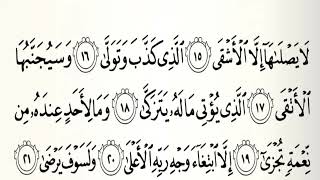 لَا يَصْلَىٰهَآ إِلَّا ٱلْأَشْقَى ۝١٥ ٱلَّذِى كَذَّبَ وَتَوَلَّىٰ ۝١٦ وَسَيُجَنَّبُهَا
ٱلْأَتْقَى ۝١٧ ٱلَّذِى يُؤْتِى مَالَهُۥ يَتَزَكَّىٰ ۝١٨ وَمَا لِأَحَدٍ عِندَهُۥ مِن
نِّعْمَةٍ تُجْزَىٰٓ ۝١٩ إِلَّا ٱبْتِغَآءَ وَجْهِ رَبِّهِ ٱلْأَعْلَىٰ ۝٢٠ وَلَسَوْفَ يَرْضَىٰ ۝٢١